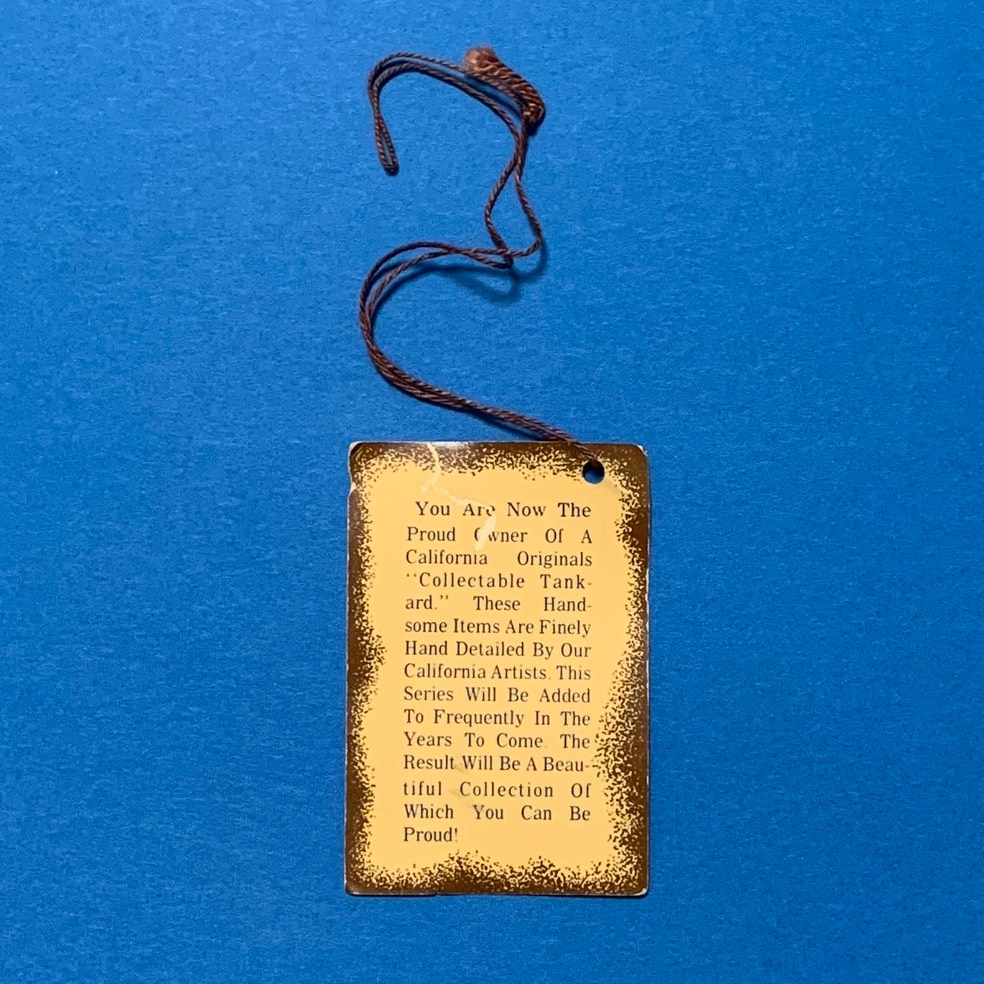 You Are Now The
Proud Owner Of A
California Originals
‘‘Collectable Tank-
ard.’’ These Hand-
some Items Are Finely
Hand Detailed By Our
California Artists. This
Series Will Be Added
To Frequently In The
Years To Come. The
Result Will Be A Beau-
tiful Collection Of
Which You Can Be
Proud!